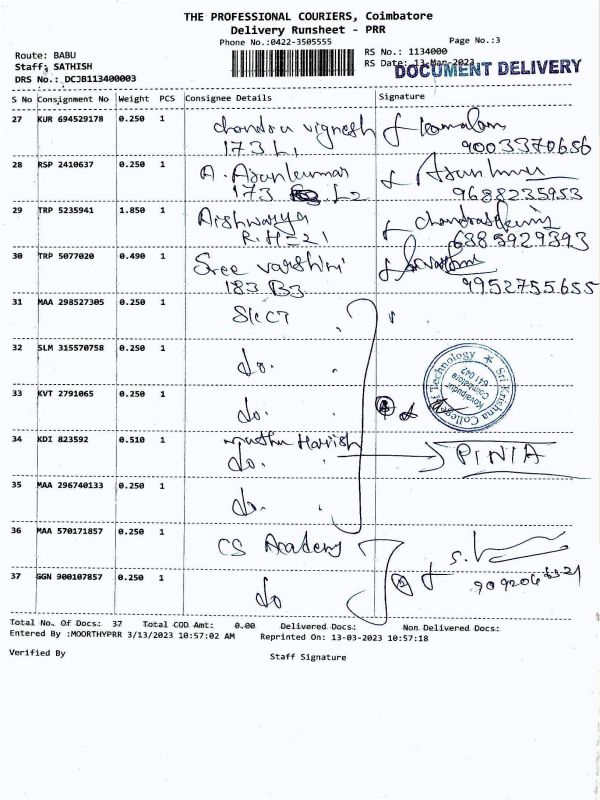 THE PROFESSIONAL COURIERS, Coimbatore
Delivery Runsheet - PRR
Phone No.:0422-3505555
Page No.:3
Route: BABU
RS No.: 1134000
Staff: SATHISH
RS Date: 13-Mar-2023
DOCUMENT DELIVERY
DRS No.: DCJB113400003
S No Consignment No Weight PCS Consignee Details Signature
27 KUR 694529178 0.250 1 chandru vignesh
173 L1 9003370656
28 RSP 2410637 0.250 1 A. Arunkumar
173 L2 9688235953
29 TRP 5235941 1.850 1 Aishwarya
R.H-21 6385929393
30 TRP 5077020 0.490 1 Sree varshini
183 B3 9952755655
31 MAA 298527305 0.250 1 SKCT
32 SLM 315570758 0.250 1 do.
33 KVT 2791065 0.250 1 do.
Sri Krishna College of Technology
Kovaipudur
Coimbatore
641 042
34 KDI 823592 0.510 1 muthu Harish
do. PINIA
35 MAA 296740133 0.250 1 do.
36 MAA 570171857 0.250 1 CS Academy
37 GGN 900107857 0.250 1 do
Total No. Of Docs: 37 Total COD Amt: 0.00 Delivered Docs: Non Delivered Docs:
Entered By :MOORTHYPRR 3/13/2023 10:57:02 AM Reprinted On: 13-03-2023 10:57:18
Verified By Staff Signature